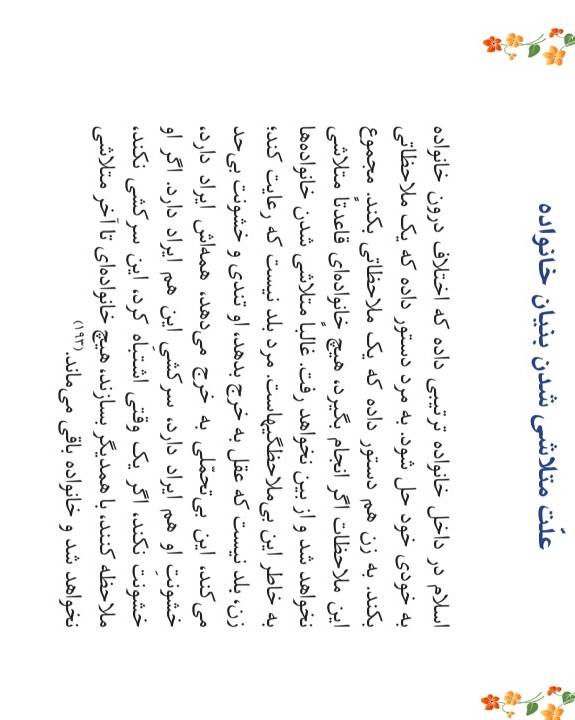 علّت متلاشی شدن بنیان خانواده
اسلام در داخل خانواده ترتیبی داده که اختلاف درون خانواده
به خودی خود حل شود. به مرد دستور داده که یک ملاحظاتی
بکند. به زن هم دستور داده که یک ملاحظاتی بکند. مجموع
این ملاحظات اگر انجام بگیرد، هیچ خانواده‌ای قاعدتاً متلاشی
نخواهد شد و از بین نخواهد رفت. غالباً متلاشی شدن خانواده‌ها
به خاطر این بی‌ملاحظگیهاست. مرد بلد نیست که رعایت کند؛
زن، بلد نیست که عقل به خرج بدهد، او تندی و خشونت بی‌حد
می‌کند، این بی‌تحمّلی به خرج می‌دهد، همه‌اش ایراد دارد،
خشونت او هم ایراد دارد، سرکشی این هم ایراد دارد. اگر او
خشونت نکند، اگر یک وقتی اشتباه کرد، این سرکشی نکند،
ملاحظه کنند، با همدیگر بسازند، هیچ خانواده‌ای تا آخر متلاشی
نخواهد شد و خانواده باقی می‌ماند.(۱۹۳)